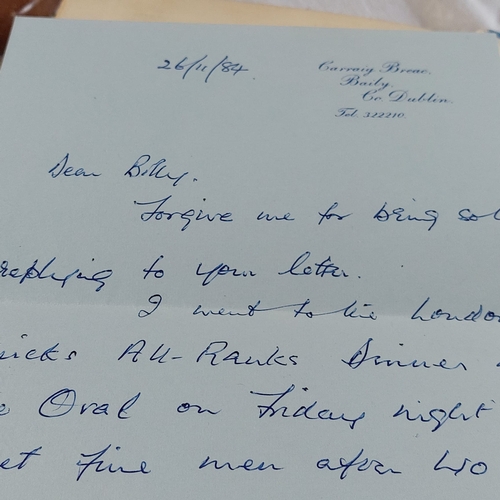 26/11/84.
Carraig Breac.
Baily.
Co. Dublin.
Tel. 322210.
Dear Billy.
Forgive me for being so
replying to your letter.
I went to the London
All-Ranks Dinner
Oval on Friday night
fine men after 40